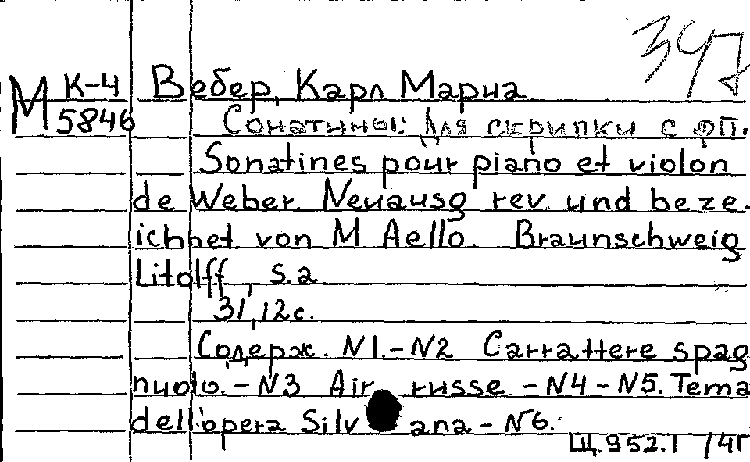 347
М К-4 Вебер, Карл Мариа
5846 Сонатины: Для скрипки с фп.
Sonatines pour piano et violon
de Weber. Neuausg rev. und beze-
ichnet von M Aello. Braunschweig
Litolff, s.a
31, 12с.
Содерж. N1.-N2 Carrattere spag
nuolo.-N3 Air russe -N4-N5. Tema
dell'opera Silv ana - N6.
Щ.952.1